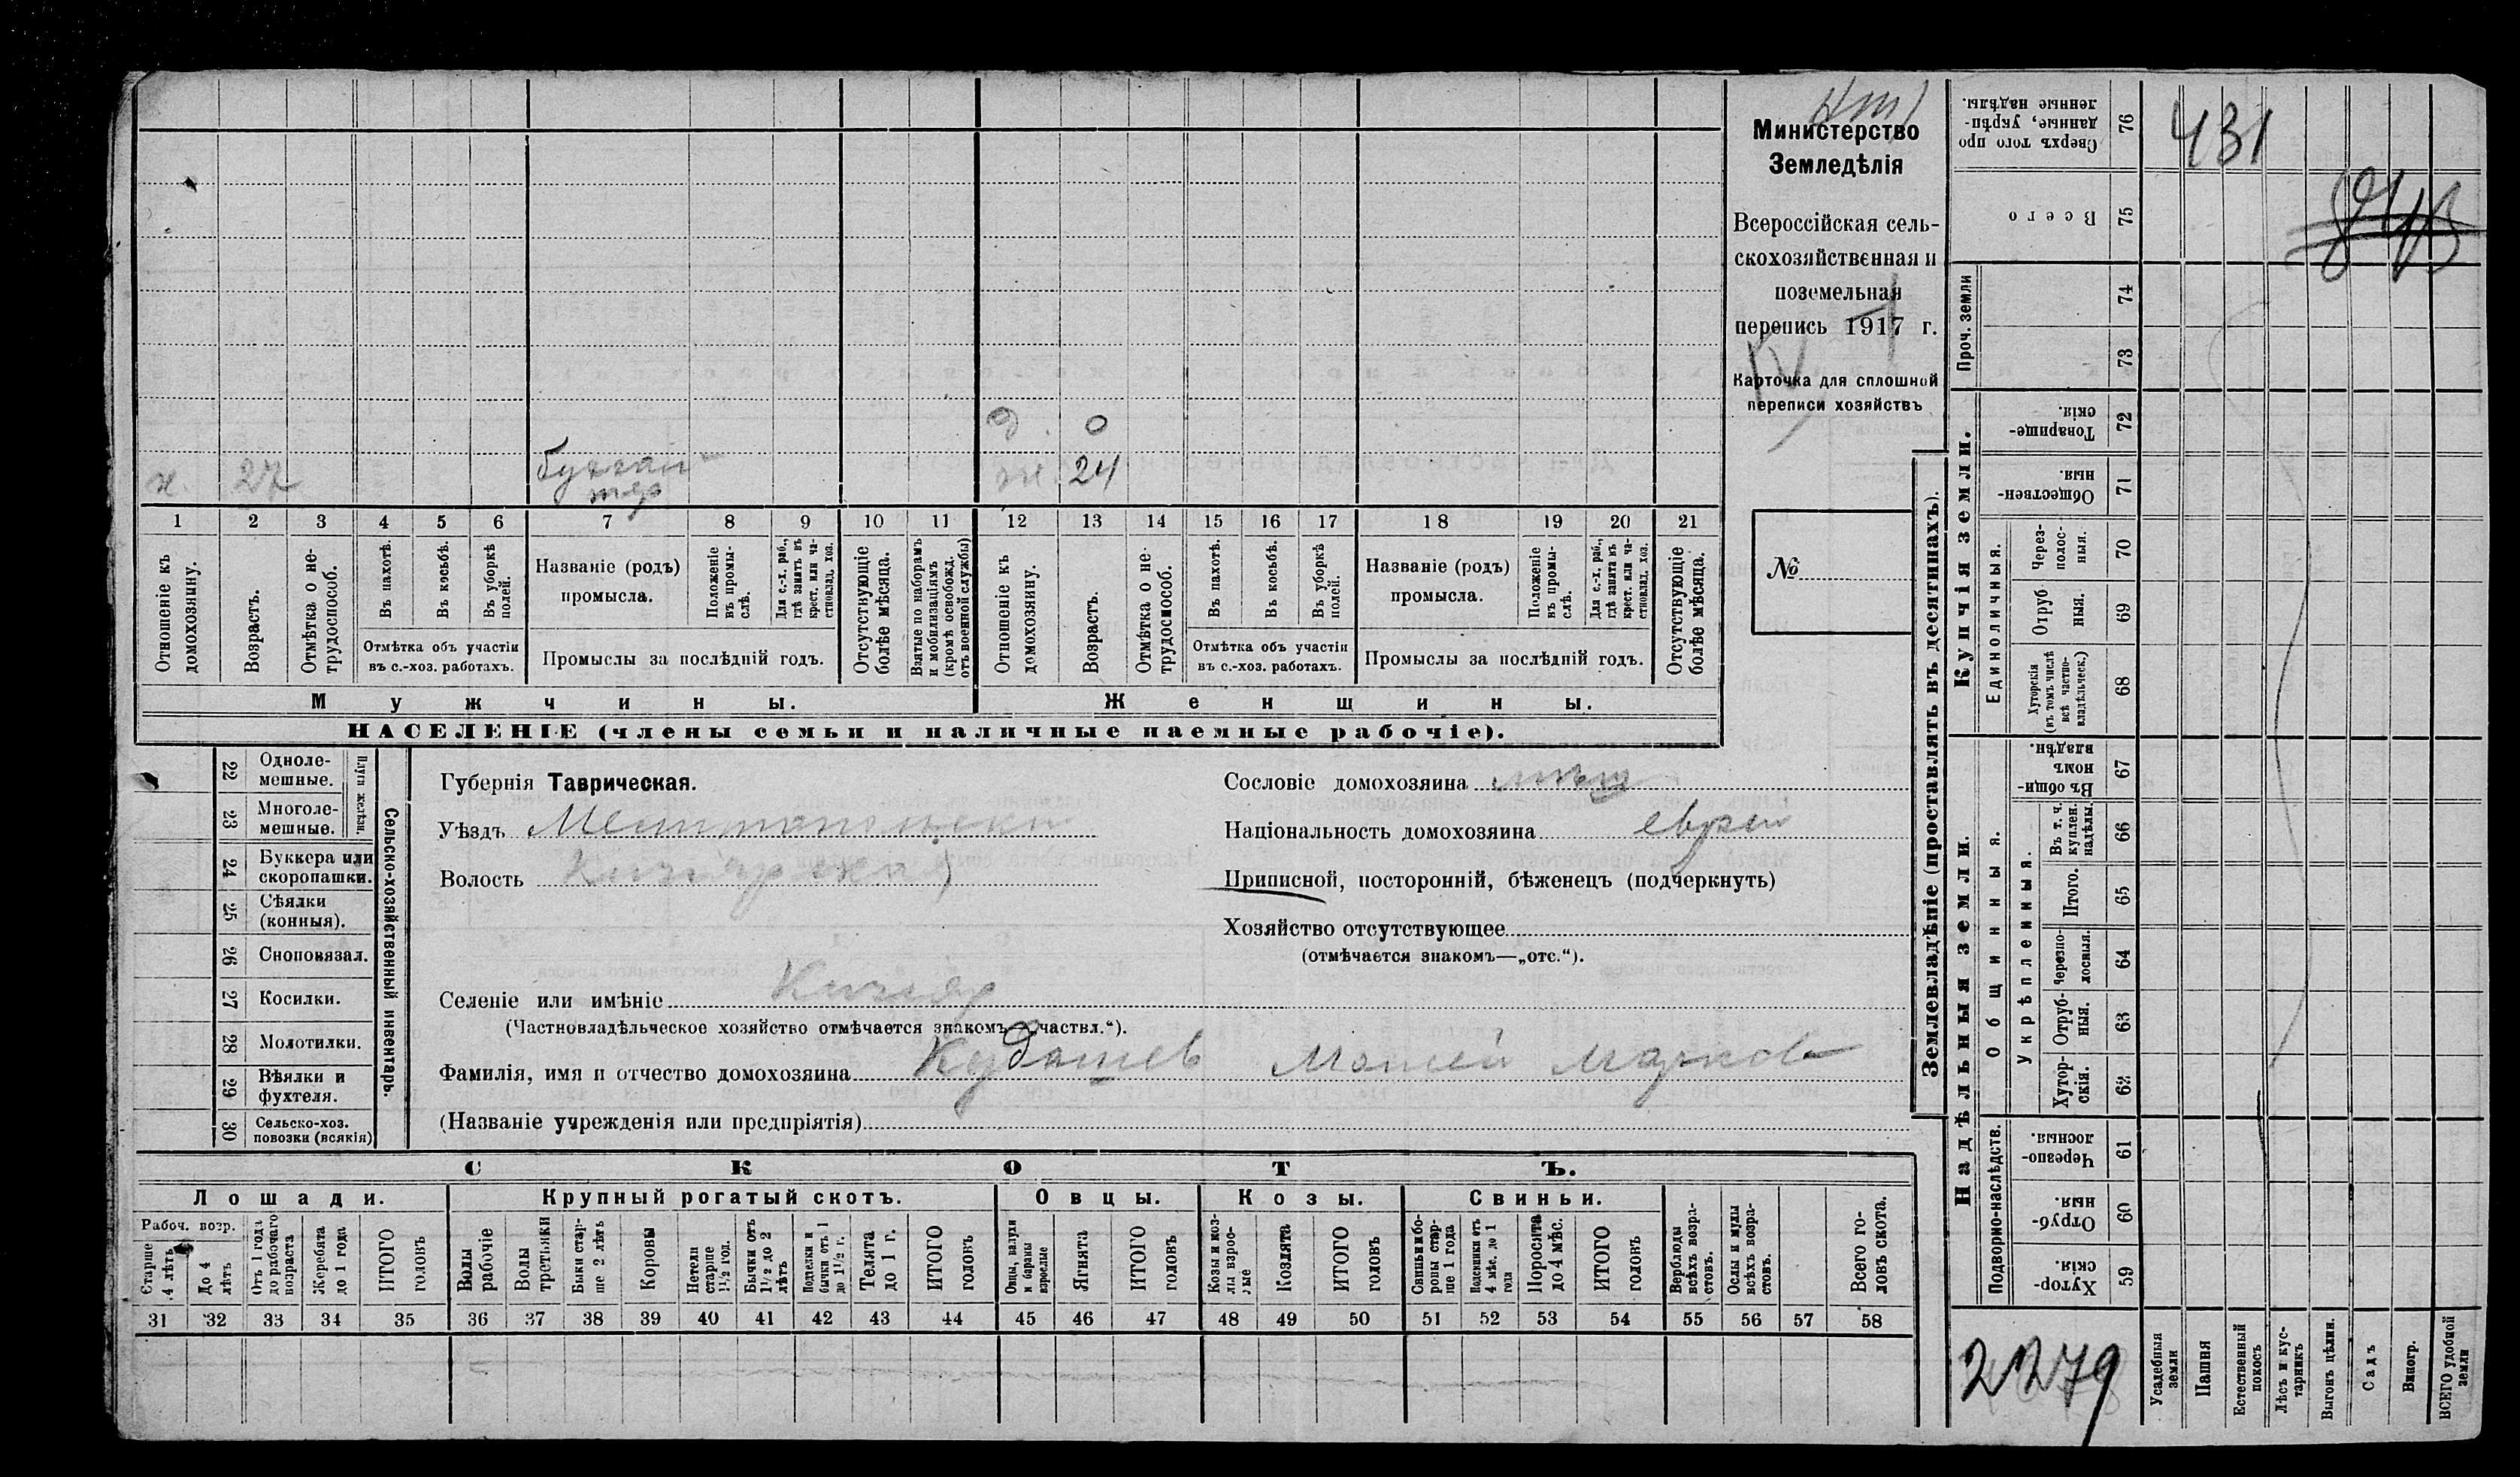 431
д. 0
х. 27 бухгал-
тер
ж. 24
1 2 3 4 5 6 7 8 9 10 11 12 13 14 15 16 17 18 19 20 21
Отношеніе къ домохозяину.
Возрастъ.
Отмѣтка о не-
трудоспособ.
Въ пахотѣ.
Въ косьбѣ.
Въ уборкѣ
полей.
Отмѣтка объ участіи
въ с.-хоз. работахъ.
Названіе (родъ)
промысла.
Положеніе
въ промы-
слѣ.
Для с.-х. раб.,
гдѣ занятъ въ
крест. или ча-
стновлад. хоз.
Промыслы за послѣдній годъ.
Отсутствующіе
болѣе мѣсяца.
Взятые по наборамъ
и мобилизаціямъ
(кромѣ освобожд.
отъ военной службы)
Отношеніе къ
домохозяину.
Возрастъ.
Отмѣтка о не-
трудоспособ.
Въ пахотѣ.
Въ косьбѣ.
Въ уборкѣ
полей.
Отмѣтка объ участіи
въ с.-хоз. работахъ.
Названіе (родъ)
промысла.
Положеніе
въ промы-
слѣ.
Для с.-х. раб.,
гдѣ занята въ
крест. или ча-
стновлад. хоз.
Промыслы за послѣдній годъ.
Отсутствующіе
болѣе мѣсяца.
Мужчины. Женщины.
НАСЕЛЕНІЕ (члены семьи и наличные наемные рабочіе).
Министерство
Земледѣлія
Всероссійская сель-
скохозяйственная и
поземельная
перепись 1917 г.
Карточка для сплошной
переписи хозяйствъ
№
22 Одноле-
мешные.
23 Многоле-
мешные.
Плуги желѣзн.
24 Буккера или
скоропашки.
25 Сѣялки
(конныя).
26 Сноповязал.
27 Косилки.
28 Молотилки.
29 Вѣялки и
фухтеля.
30 Сельско-хоз.
повозки (всякія)
Сельско-хозяйственный инвентарь.
Губернія Таврическая.
Уѣздъ Мелитопольскій
Волость
Селеніе или имѣніе
(Частновладѣльческое хозяйство отмѣчается знакомъ—„частвл.“).
Фамилія, имя и отчество домохозяина Кудашев Моисей Марков
(Названіе учрежденія или предпріятія)
Сословіе домохозяина мѣщ
Національность домохозяина еврей
Приписной, посторонній, бѣженецъ (подчеркнуть)
Хозяйство отсутствующее
(отмѣчается знакомъ—„отс.“).
СКОТЪ.
Лошади. Крупный рогатый скотъ. Овцы. Козы. Свиньи.
Рабоч. возр.
Старше
4 лѣтъ
До 4
лѣтъ
Отъ 1 года
до рабочаго
возраста
Жеребята
до 1 года
ИТОГО
головъ
Волы
рабочіе
Волы
третьяки
Быки стар-
ше 2 лѣтъ
Коровы
Нетели
старше
1½ год.
Бычки отъ
1½ до 2
лѣтъ
Подтелки и
бычки отъ 1
до 1½ г.
Телята
до 1 г.
ИТОГО
головъ
Овцы, валухи
и бараны
взрослые
Ягнята
ИТОГО
головъ
Козы и коз-
лы взрос-
лые
Козлята
ИТОГО
головъ
Свиньи и бо-
ровы стар-
ше 1 года
Подсвинки отъ
4 мѣс. до 1
года
Поросята
до 4 мѣс.
ИТОГО
головъ
Верблюды
всѣхъ возра-
стовъ.
Ослы и мулы
всѣхъ возра-
стовъ.
Всего го-
ловъ скота.
31 32 33 34 35 36 37 38 39 40 41 42 43 44 45 46 47 48 49 50 51 52 53 54 55 56 57 58
Землевладѣніе (проставлять въ десятинахъ).
Купчія земли.
Сверхъ того про
данные, укрѣп-
ленные надѣлы. 76
Всего 75
Проч. земли 74
73
Товарище-
скія. 72
Обществен-
ныя 71
Единоличныя.
Через-
полос-
ныя. 70
Отруб-
ныя. 69
Хуторскія
(въ томъ числѣ
всѣ частно-
владѣльческ.) 68
Надѣльныя земли.
Общинныя.
Въ общин-
номъ
владѣн. 67
Укрѣпленныя.
Въ т. ч.
куплен.
надѣлы. 66
Итого. 65
Черезпо-
лосныя. 64
Отруб-
ныя. 63
Хутор-
скія. 62
Подворно-наслѣдств.
Черезпо-
лосныя. 61
Отруб-
ныя. 60
Хутор-
скія. 59
2279
Усадебныя
земли
Пашня
Естественный
покосъ
Лѣсъ и кус-
тарникъ
Выгонъ цѣлин.
Садъ
Виногр.
ВСЕГО удобной
земли